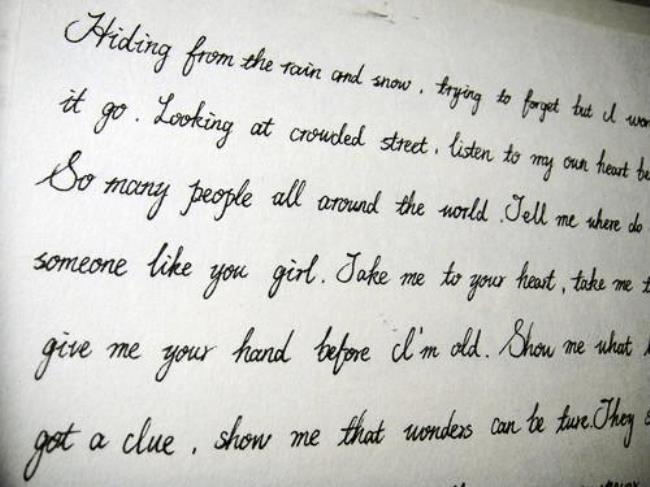 Hiding from the rain and snow, trying to forget but I won
it go. Looking at crowded street, listen to my own heart be
So many people all around the world. Tell me where do
someone like you girl. Take me to your heart, take me t
give me your hand before I'm old. Show me what
got a clue, show me that wonders can be ture. They s